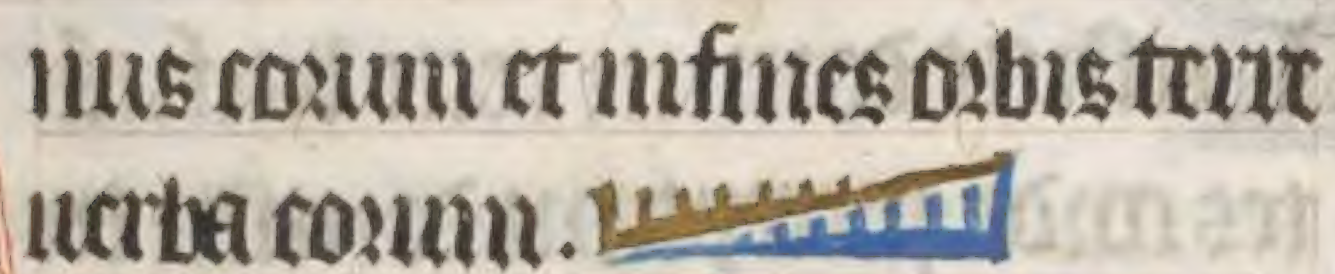 nus eorum et infines orbis terre
uerba eorum.